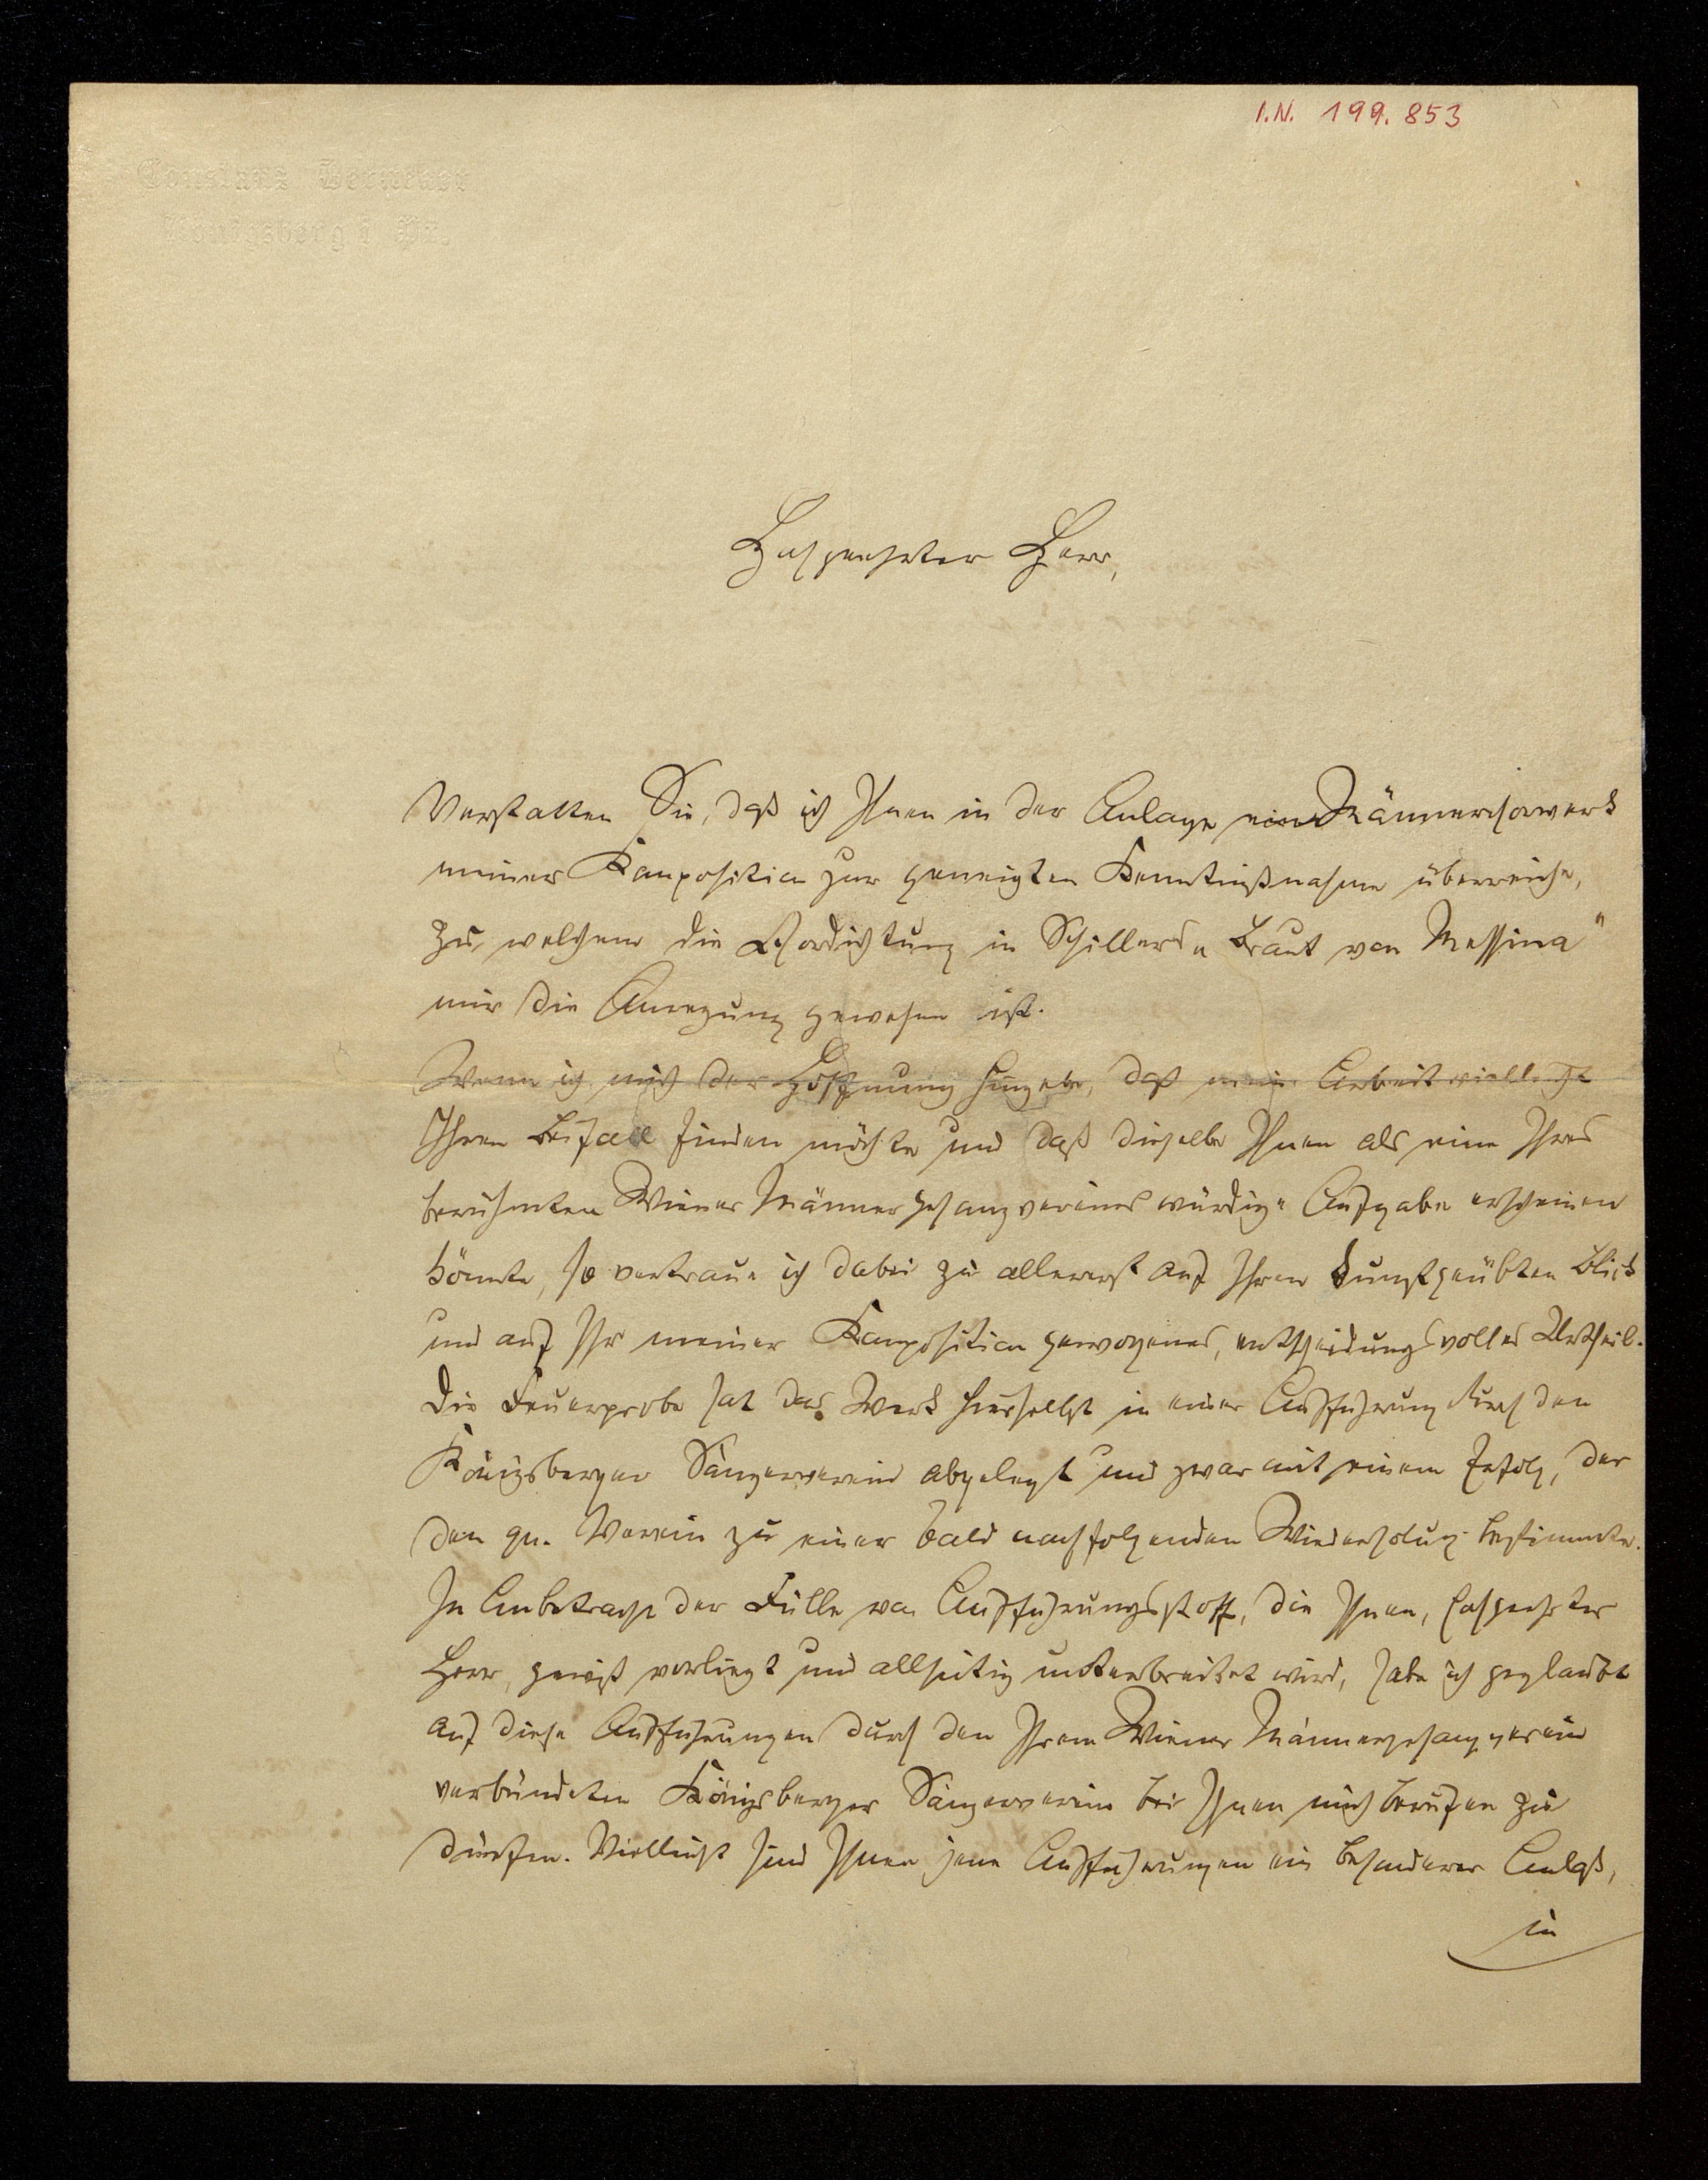 I.N. 199.853
Constanz Berneker
Königsberg i Pr.
Hochgeehrter Herr,
Verstatten Sie, daß ich Ihnen in der Anlage ein Männerchorwerk
meiner Komposition zur geneigten Kenntnißnahme überreiche,
zu welchem die Chordichtung in Schillers „Braut von Messina"
mir die Anregung gewesen ist.
Wenn ich mich der Hoffnung hingebe, daß meine Arbeit vielleicht
Ihren Beifall finden möchte und daß dieselbe Ihnen als eine Ihres
berühmten Wiener Männergesangvereines würdige Aufgabe erscheinen
könnte, so vertraue ich dabei zu allererst auf Ihren kunstgeübten Blick
und auf Ihr meiner Komposition gewogenes, entscheidungsvolles Urtheil.
Die Feuerprobe hat das Werk hierselbst in einer Aufführung durch den
Königsberger Sängerverein abgelegt und zwar mit einem Erfolg, der
den qu. Verein zu einer bald nachfolgenden Wiederholung bestimmte.
In Anbetracht der Fülle von Aufführungsstoff, die Ihnen, hochgeehrter
Herr, gewiß vorliegt und allseitig unterbreitet wird, habe ich geglaubt
auf diese Aufführungen durch den Ihrem Wiener Männergesangverein
verbündeten Königsberger Sängerverein bei Ihnen mich berufen zu
dürfen. Vielleicht sind Ihnen jene Aufführungen ein besonderer Anlaß,
in